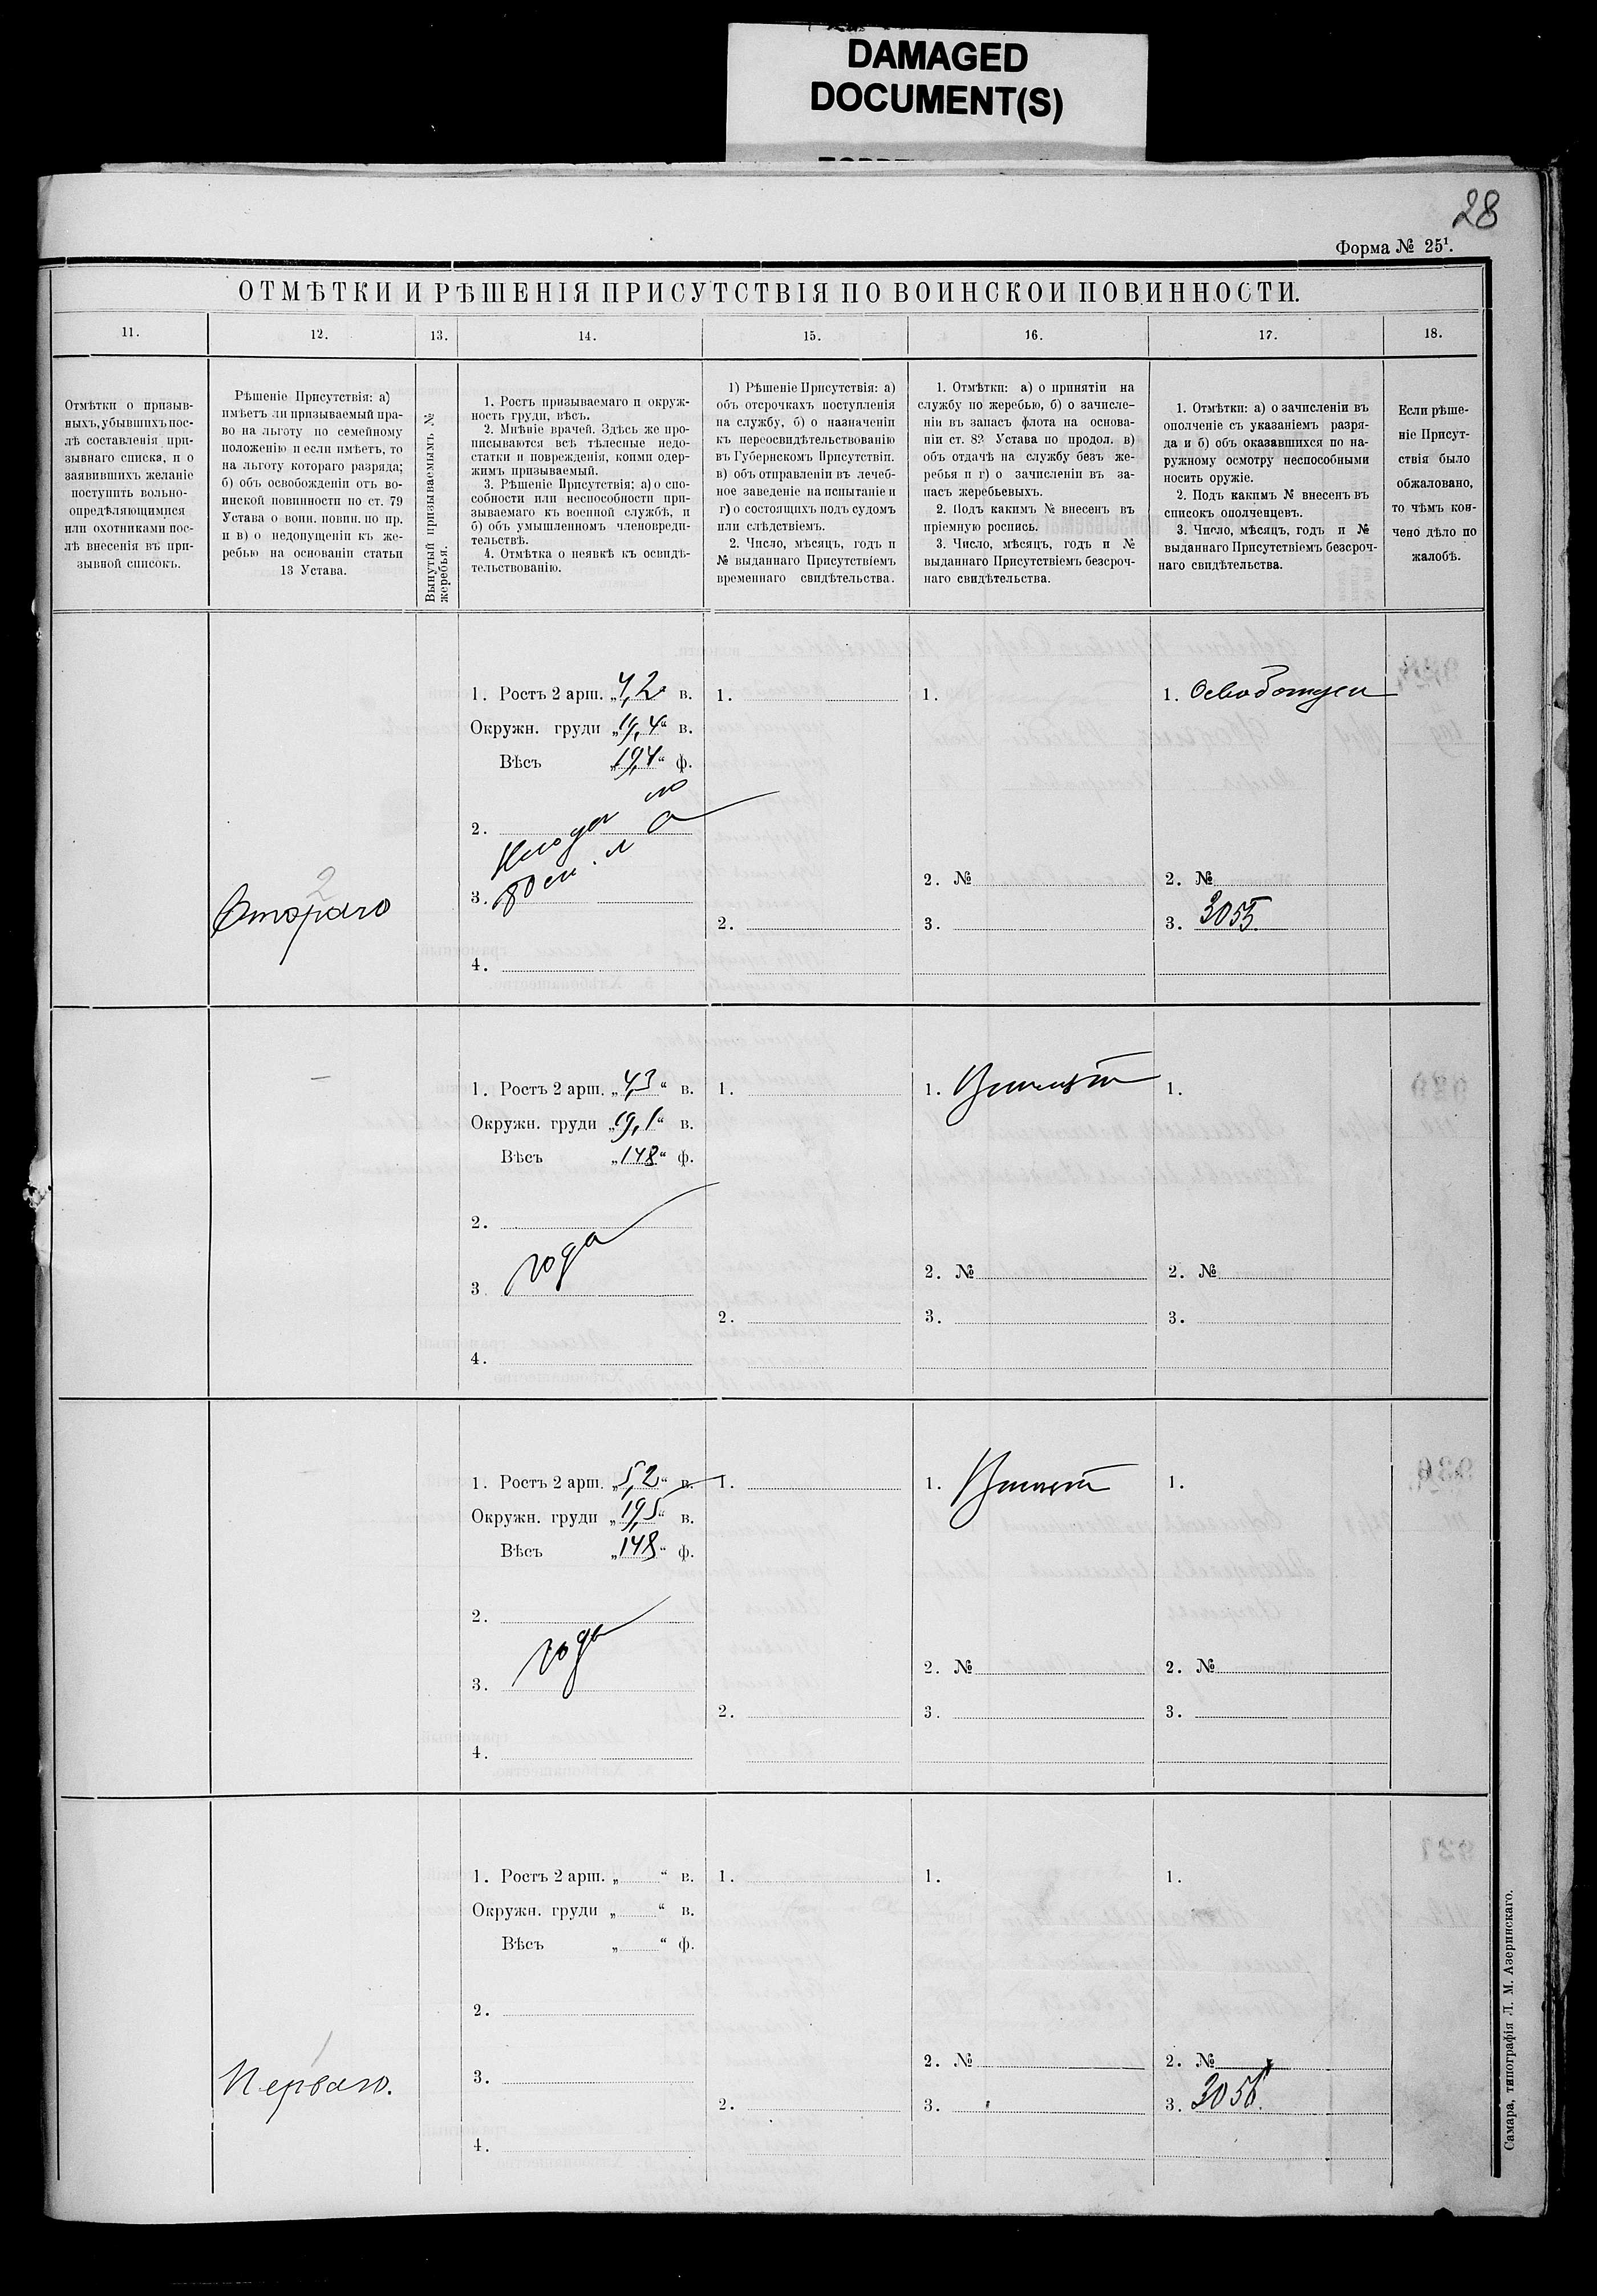 DAMAGED
DOCUMENT(S)
28
Форма № 25¹.
ОТМѢТКИ И РѢШЕНІЯ ПРИСУТСТВІЯ ПО ВОИНСКОИ ПОВИННОСТИ.
11.
12.
13.
14.
15.
16.
17.
18.
Отмѣтки о призыв-
ныхъ, убывшихъ пос-
лѣ составленія при-
зывнаго списка, и о
заявившихъ желаніе
поступить вольно-
опредѣляющимися
или охотниками пос-
лѣ внесенія въ при-
зывной списокъ.
Рѣшеніе Присутствія: а)
имѣетъ ли призываемый пра-
во на льготу по семейному
положенію и если имѣетъ, то
на льготу котораго разряда;
б) объ освобожденіи отъ во-
инской повинности по ст. 79
Устава о воин. повин. по пр.
и в) о недопущеніи къ же-
ребью на основаніи статьи
13 Устава.
Вынутый призываемымъ №
жеребья.
1. Ростъ призываемаго и окруж-
ность груди, вѣсъ.
2. Мнѣніе врачей. Здѣсь же про-
писываются всѣ тѣлесные недо-
статки и поврежденія, коими одер-
жимъ призываемый.
3. Рѣшеніе Присутствія; а) о спо-
собности или неспособности при-
зываемаго къ военной службѣ, и
б) объ умышленномъ членовреди-
тельствѣ.
4. Отмѣтка о неявкѣ къ освидѣ-
тельствованію.
1) Рѣшеніе Присутствія: а)
объ отсрочкахъ поступленія
на службу, б) о назначеніи
къ переосвидѣтельствованію
въ Губернскомъ Присутствіи.
в) объ отправленіи въ лечеб-
ное заведеніе на испытаніе и
г) о состоящихъ подъ судомъ
или слѣдствіемъ.
2. Число, мѣсяцъ, годъ и
№ выданнаго Присутствіемъ
временнаго свидѣтельства.
1. Отмѣтки: а) о принятіи на
службу по жеребью, б) о зачисле-
ніи въ запасъ флота на основа-
ніи ст. 82 Устава по продол. в)
объ отдачѣ на службу безъ же-
ребья и г) о зачисленіи въ за-
пасъ жеребьевыхъ.
2. Подъ какимъ № внесенъ въ
пріемную роспись.
3. Число, мѣсяцъ, годъ и №
выданнаго Присутствіемъ безсроч-
наго свидѣтельства.
1. Отмѣтки: а) о зачисленіи въ
ополченіе съ указаніемъ разря-
да и б) объ оказавшихся по на-
ружному осмотру неспособными
носить оружіе.
2. Подъ какимъ № внесенъ въ
списокъ ополченцевъ.
3. Число, мѣсяцъ, годъ и №
выданнаго Присутствіемъ безсроч-
наго свидѣтельства.
Если рѣше-
ніе Присут-
ствія было
обжаловано,
то чѣмъ кон-
чено дѣло по
жалобѣ.
2
Втораго
1. Ростъ 2 арш. „4,2“ в.
Окружн. груди „19,4“ в.
Вѣсъ „194“ ф.
2.
3.
4.
1.
2.
1.
2. №
3.
1. Освобожден
2. №
3. 3055.
—
1. Ростъ 2 арш. „4,3“ в.
Окружн. груди „19,1“ в.
Вѣсъ „148“ ф.
2.
3. годен
4.
1.
2.
1. Принят
2. №
3.
1.
2. №
3.
1. Ростъ 2 арш. „5,2“ в.
Окружн. груди „19,5“ в.
Вѣсъ „148“ ф.
2.
3. годен
4.
1.
2.
1. Принят
2. №
3.
1.
2. №
3.
1
Перваго.
1. Ростъ 2 арш. „ “ в.
Окружн. груди „ “ в.
Вѣсъ „ “ ф.
2.
3.
4.
1.
2.
1.
2. №
3.
1.
2. №
3. 3056.
Самара, типографія Л. М. Азеринскаго.